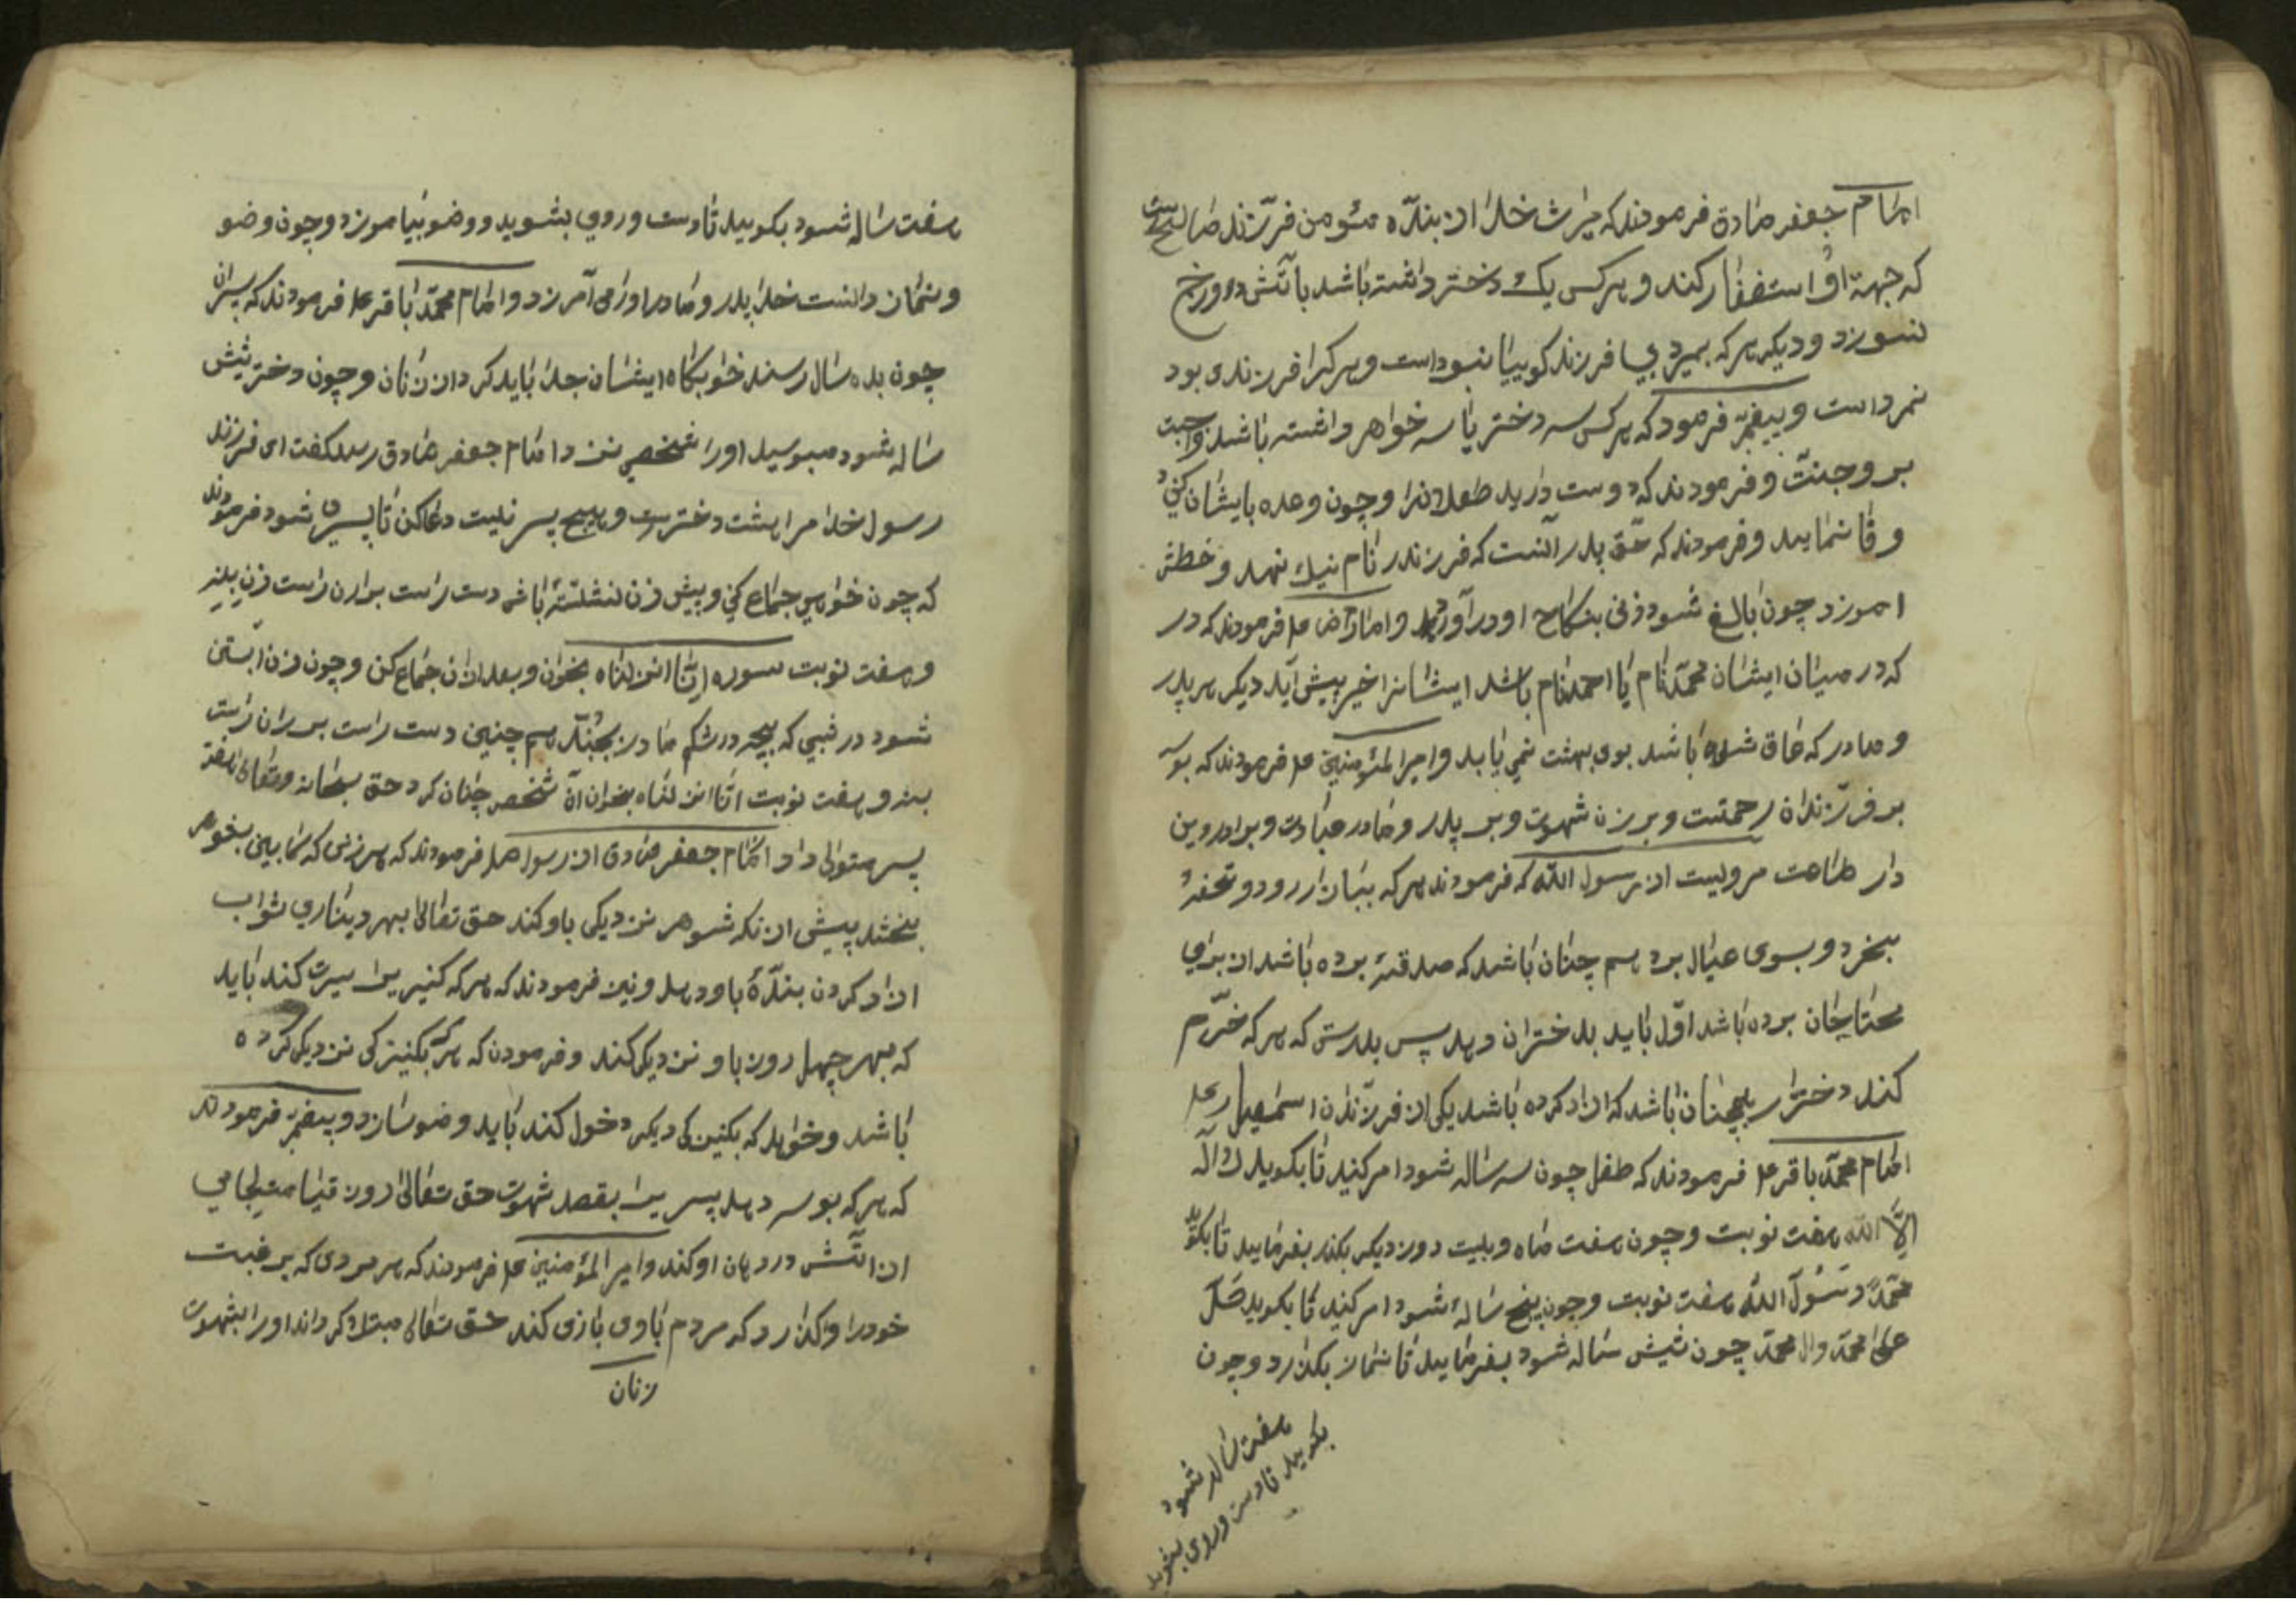 امام جعفر صادق فرمودند که میراث خدا از بنده مئومن فرزند صالح است
که جهة او استغفار کند و هر کس یک دختر داشته باشد باتش دوزخ
نسوزد و دیکر هر که بمیرد بی فرزند کوییا نبود است و هر کرا فرزندی بود
نمرد است و پیغمبر فرمود که هر کس سه دختر یا سه خواهر داشته باشد واجبت
بر و جنت و فرمودند که دوست دارید طفلانرا و چون وعده بایشان کنید
وفا نمایید و فرمودند که حق پدر آنست که فرزند را نام نیک نهد و خطش
اموزد چون بالغ شود زنی بنکاح او در آورد و امام رضا ع فرمودند که در
که در میان ایشان محمد نام یا احمد نام باشد ایشانرا خیر پیش آید دیکر هر پدر
و مادر که عاق شده باشد بوی بهشت نمی یابد و امیر المئومنین ع فرمودند که بوسه
بر فرزندان رحمتست و بر زن شهوت و بر پدر و مادر عبادت و برادر دین
دار طاعت مرویست از رسول الله که فرمودند هر که ببازار رود و تحفه
بخرد و بسوی عیال برد هم چنان باشد که صدقه برده باشد از برای
محتاجان برده باشد اول باید بدختران دهد پس بپدرش که هر که خرم
کند دخترا هم چنان باشد که ازاد کرده باشد یکی از فرزندان اسمعیل را
امام محمد باقر ع فرمودند که طفل چون سه ساله شود امر کنید تا بکوید لا اله
الا الله هفت نوبت و چون هفت ماه و بیست روز دیکر بکذرد بفرمایید تا بکوید
محمد رسول الله هفت نوبت و چون پنج ساله شود امر کنید تا بکوید صل
علی محمد وال محمد چون شیش ساله شود بفرمایید تا نماز بکذارد و چون
هفت ساله شود
بکویید تا دست و روی بشوید
هفت ساله شود بکویید تا دست و روی بشوید و وضو بیاموزد و چون وضو
و نماز دانست خدا پدر و مادر او را می آمرزد و امام محمد باقر ع فرمودند که پسران
چون بده سال رسند خوابکاه ایشان جدا باید کرد از زنان و چون دختر شش
ساله شود مبوسید او را شخصی نزد امام جعفر صادق رسید کفت ای فرزند
رسول خدا مرا هشت دخترست و هیچ پسر نیست دعا کن تا پسری شود فرمودند
که چون خواهی جماع کنی و پیش زن نشسته باشی دست راست بر ران راست زن بنه
و هفت نوبت سوره انا انزلناه بخوان و بعد از ان جماع کن و چون زن ابستن
شود در شبی که بچه در شکم مادر بجنبد هم چنین دست راست بر ران راست
بنه و هفت نوبت انا انزلناه بخوان آن شخص چنان کرد حق سبحانه و تعالی هفت
پسر متوالی داد امام جعفر صادق از رسول صلم فرمودند که هر زنی که کابین بشوهر
بخشد پیش از نکه شوهر نزدیکی باو کند حق تعالی بهر دیناری ثواب
ازاد کردن بنده باو دهد و نیز فرمودند که هر که کنیزیرا سیرت کند باید
که بهر چهل روز باو نزدیکی کند و فرمودن که هر که بکنیزکی نزدیکی کرده
باشد و خواهد که بکنیزکی دیکر دخول کند باید وضو سازد و پیغمبر فرمودند
که هر که بوسه دهد پسریرا بقصد شهوت حق تعالی روز قیامت لجامی
از اتش در دهان او کند و امیر المؤمنین ع فرمودند که هر مردی که برغبت
خود را واکذارد که مردم با وی بازی کند حق تعالی مبتلا کرداند او را بشهوت
زنان